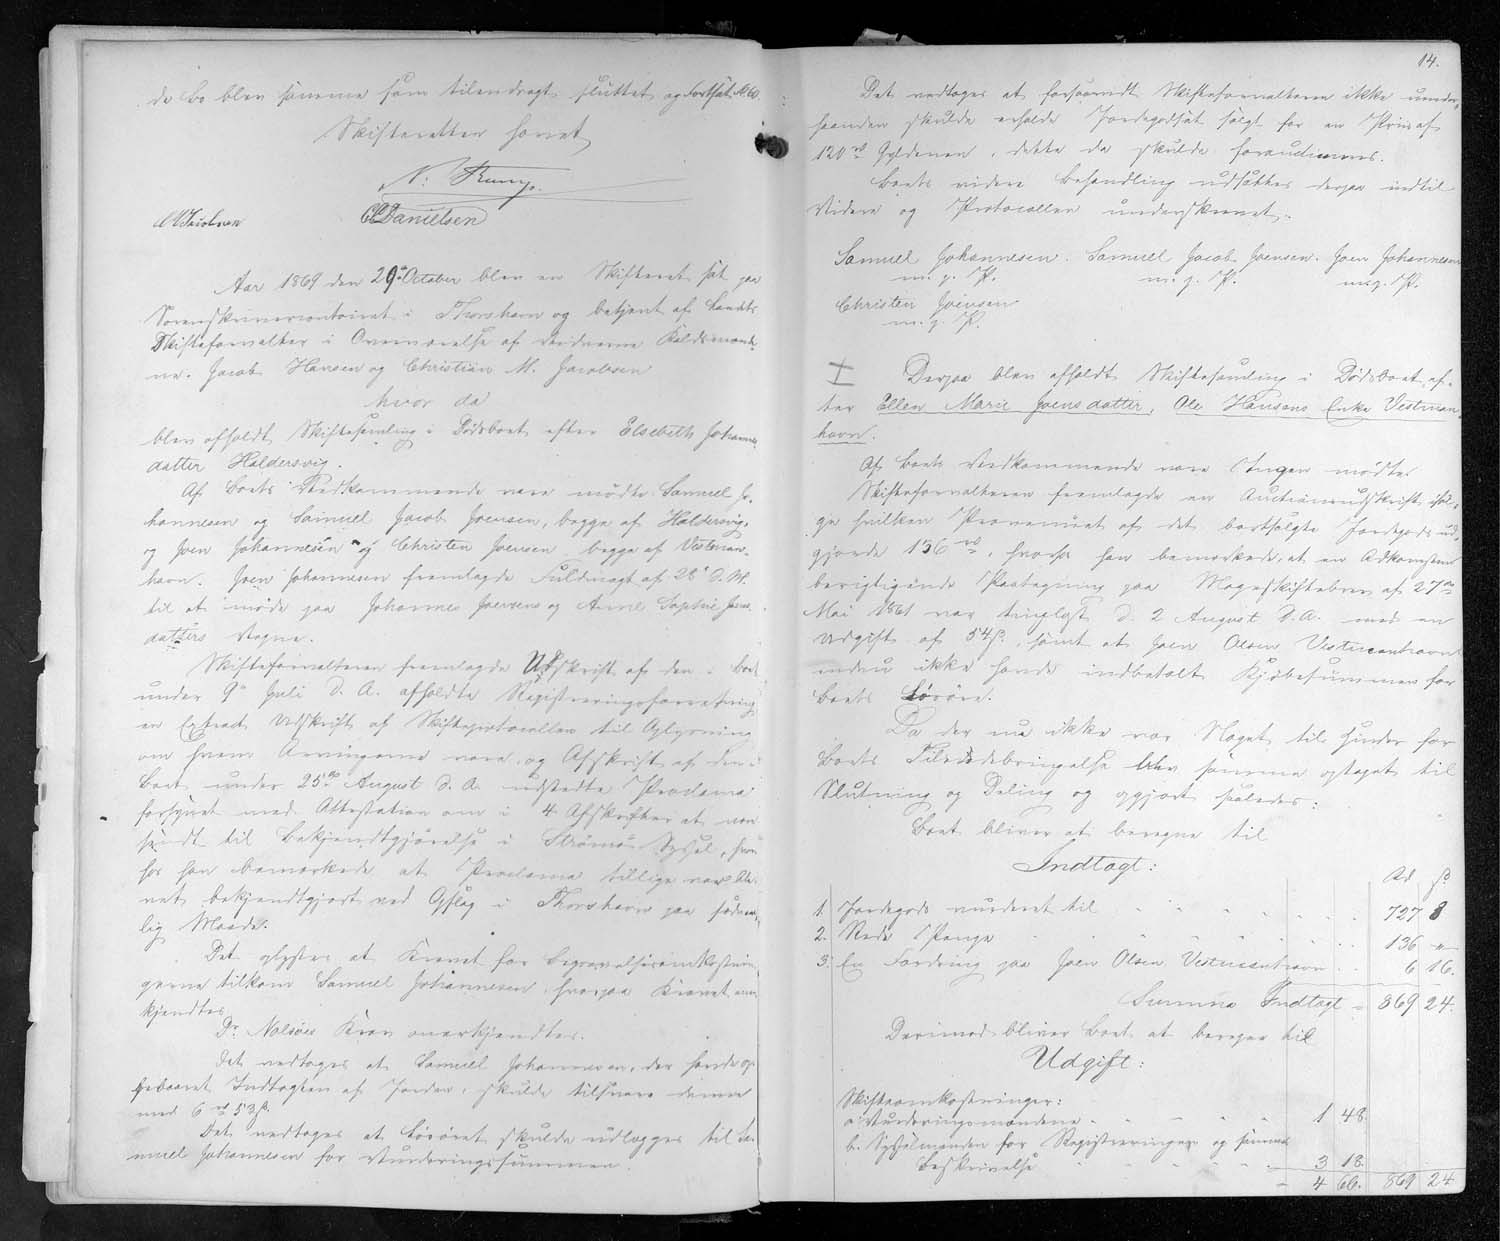 de Bo blev samme som tilendragt sluttet og Fortsat
Skifteretten hævet
C Danielsen
Aar 1869 den 29de October blev en Skifteret sat paa
Sorenskrivercontoiret i Thorshavn og betjent af Landets
Skifteforvalter i Overværelse af Vidnerne
Jacob Hansen og Christian M. Jacobsen
hvor da
blev afholdt Skiftesamling i Dødsboet efter Elsebeth Johannes
datter Haldersvig.
Af Boets Vedkommende vare mødte Samuel Jo-
hannesen og Samuel Jacob Joensen, begge af Haldersvig,
og Joen Johannesen og Christen Joensen begge af Vestman-
havn. Joen Johannesen fremlagde Fuldmagt af 28' d. M.
til at møde paa Johannes Joensens og Anne Sophie Joens
datters Vegne.
Skifteforvalteren fremlagde Udskrift af den i Boet
under 9' Juli d. A. afholdte Registreringsforretning
en Extract Udskrift af Skifteprotocollen til Oplysning
om hvem Arvingerne vare, og Afskrift af den i
Boet under 25de August d. A. udstedte Proclama
forsynet med Attestation om i 4 Afskrifter at være
sendt til Bekjendtgjørelse i Strømø Syssel, hvor
for han bemærkede at Proclama tillige var
bekjendtgjort ved Opslag i Thorshavn paa sædvan-
lig Maade.
Det oplystes at Kravet for Begravelsesomkostnin-
gerne tilkom Samuel Johannesen, hvorpaa Kravet aner-
kjendtes
Dr Nolsøes Krav anerkjendtes.
Det vedtoges at Samuel Johannesen, der havde op-
pebaaret Indtægten af Jorden, skulde tilsvare denne
med 6 rd 53 ß.
Det vedtoges at Løsøret skulde udlægges til Sa-
muel Johannesen for Vurderingssummen.
14.
Det vedtoges at forsaavidt Skifteforvalteren ikke under-
haanden skulde erholde Jordegodset solgt for en Priis af
120 rd Gyldenen, dette da skulde foraudioneres.
Boets videre Behandling udsattes derpaa indtil
Videre og Protocollen underskrevet.
Samuel Johannesen. Samuel Jacob Joensen. Joen Johannesen
m. p. P. m. p. P. m. p. P.
Christen Joensen
m. p. P.
Derpaa blev afholdt Skiftesamling i Dødsboet ef-
ter Ellen Marie Joensdatter, Ole Hansens Enke Vestman-
havn.
Af Boets Vedkommende vare Ingen mødte.
Skifteforvalteren fremlagde en Auctionsudskrift iføl-
ge hvilken Provenuet af det bortsolgte Jordegods ud-
gjorde 136 rd, hvorhos han bemærkede, at en Adkomsten
berigtigende Paategning paa Mageskiftebrev af 27de
Mai 1861 var tinglæst d. 2 August d. A. med en
Udgift af 54 ß, samt at Joen Olsen Vestmanhavn
endnu ikke havde indbetalt Kjøbesummen for
Boets Løsøre.
Da der nu ikke var Noget til Hinder for
Boets Tilendebringelse blev samme optaget til
Slutning og Deling og opgjort saaledes:
Boet bliver at beregne til
Indtægt:
Rd. ß.
1. Jordegods vurderet til 727 8
2. Rede Penge 136 "
3. En Fordring paa Joen Olsen Vestmanhavn 6 16.
Summa Indtægt 869 24.
Derimod bliver Boet at beregne til
Udgift:
Skifteomkostninger:
a. Vurderingsmændene 1 48.
b. Sysselmanden for Registreringer og sammes
Beskrivelse 3 18.
4 66. 869 24